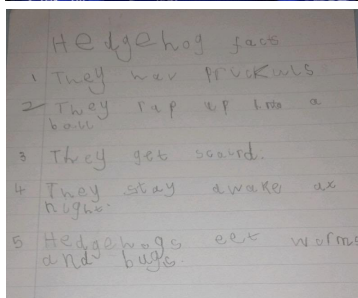 Hedgehog fact
1 They hav pruckuls
2 They rap up into a
ball
3 They get scourd.
4 They stay awake at
night.
5 Hedgehogs eet worms
and bugs.